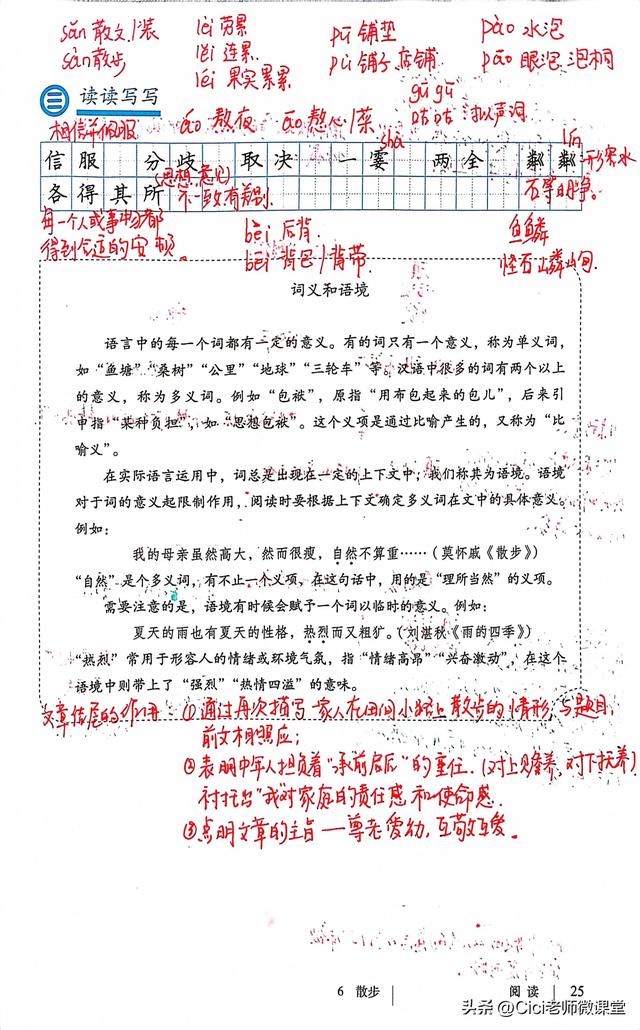 sǎn 散文 / 装
sàn 散步
lèi 劳累
lěi 连累
léi 果实累累
pū 铺垫
pù 铺子 店铺
pào 水泡
pāo 眼泡 泡桐
三 读读写写
gū gū
咕咕 拟声词
相信并佩服
áo 熬夜 āo 熬心 / 菜
shà
lín
信服 分歧 取决 一霎 两全 粼粼
形容水
石等明净。
各得其所
(思想、意见)
不一致,有差别.
每一个人或事物都
得到合适的安顿。
bèi 后背.
bēi 背包 / 背带.
鱼鳞
怪石嶙峋.
词义和语境
语言中的每一个词都有一定的意义。有的词只有一个意义，称为单义词，
如“鱼塘”“桑树”“公里”“地球”“三轮车”等。汉语中很多的词有两个以上
的意义，称为多义词。例如“包袱”，原指“用布包起来的包儿”，后来引
申指“某种负担”，如“思想包袱”。这个义项是通过比喻产生的，又称为“比
喻义”。
在实际语言运用中，词总是出现在一定的上下文中，我们称其为语境。语境
对于词的意义起限制作用，阅读时要根据上下文确定多义词在文中的具体意义。
例如：
我的母亲虽然高大，然而很瘦，自然不算重……（莫怀戚《散步》）
“自然”是个多义词，有不止一个义项，在这句话中，用的是“理所当然”的义项。
需要注意的是，语境有时候会赋予一个词以临时的意义。例如：
夏天的雨也有夏天的性格，热烈而又粗犷。（刘湛秋《雨的四季》）
“热烈”常用于形容人的情绪或环境气氛，指“情绪高昂”“兴奋激动”，在这个
语境中则带上了“强烈”“热情四溢”的意味。
文章结尾的作用：①通过再次描写一家人在田间小路上散步的情形，与题目，
前文相照应；
②表明中年人担负着“承前启后”的重任.（对上赡养，对下抚养）
衬托出“我对家庭的责任感和使命感.
③点明文章的主旨——尊老爱幼，互敬互爱。
6 散步 阅读 25
头条 @Cici老师微课堂